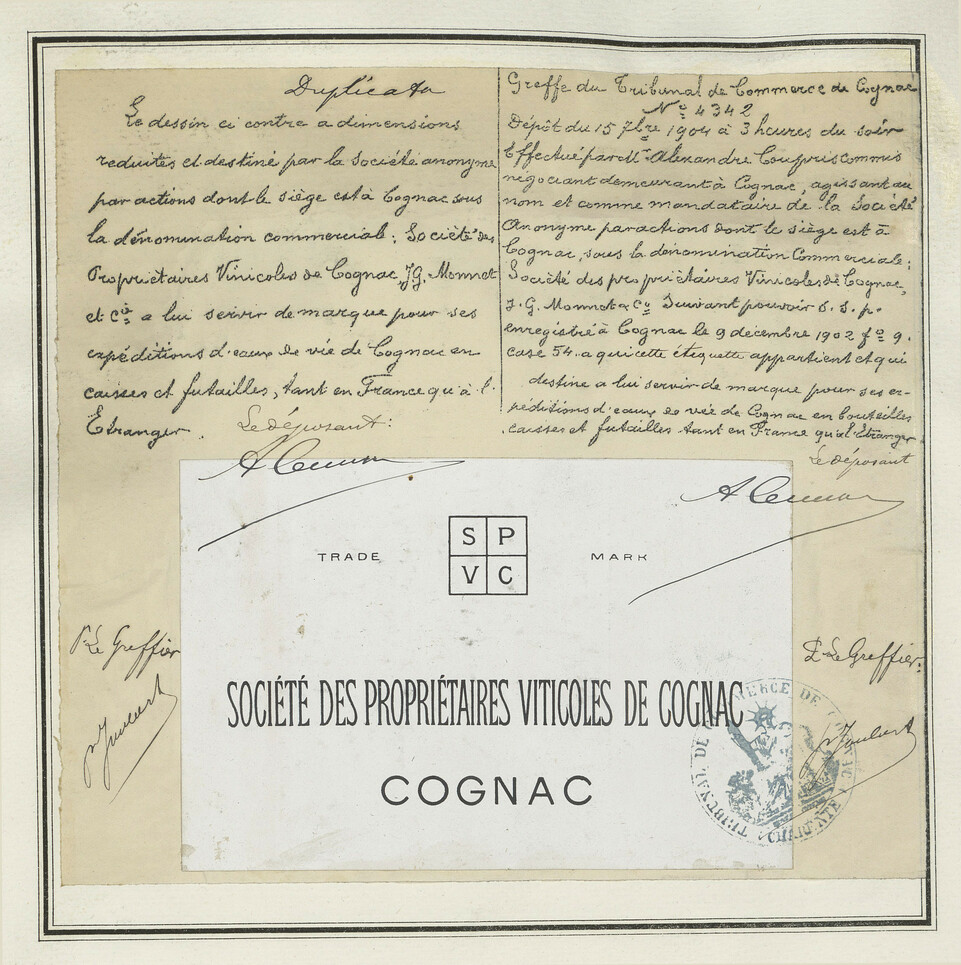 Duplicata
Le dessin ci contre a dimensions
reduites et destiné par la Société anonyme
par actions dont le siège est à Cognac sous
la dénomination commerciale: Société des
Propriétaires Vinicoles de Cognac, J.G. Monnet
et Cie a lui servir de marque pour ses
expéditions d'eaux de vie de Cognac en
caisses et futailles, tant en France qu'à l'
Etranger. Le déposant:
Greffe du Tribunal de Commerce de Cognac
No 4342
Dépôt du 15 7bre 1904 à 3 heures du soir
Effectué par Mr Alexandre commis
négociant demeurant à Cognac, agissant au
nom et comme mandataire de la Société
Anonyme par actions dont le siège est à
Cognac, sous la dénomination Commerciale:
Société des propriétaires Vinicoles de Cognac,
J. G. Monnet & Co Suivant pouvoir S. S. p.
enregistré à Cognac le 9 décembre 1902 fo 9.
case 54. a qui cette étiquette appartient et qui
destine a lui servir de marque pour ses ex-
péditions d'eaux de vie de Cognac en bouteilles
caisses et futailles tant en France qu'a l'Etranger
Le déposant
TRADE
S P
V C
MARK
SOCIÉTÉ DES PROPRIÉTAIRES VITICOLES DE COGNAC
COGNAC
Pr Le Greffier
Pr Le Greffier:
TRIBUNAL DE COMMERCE DE COGNAC
CHARENTE